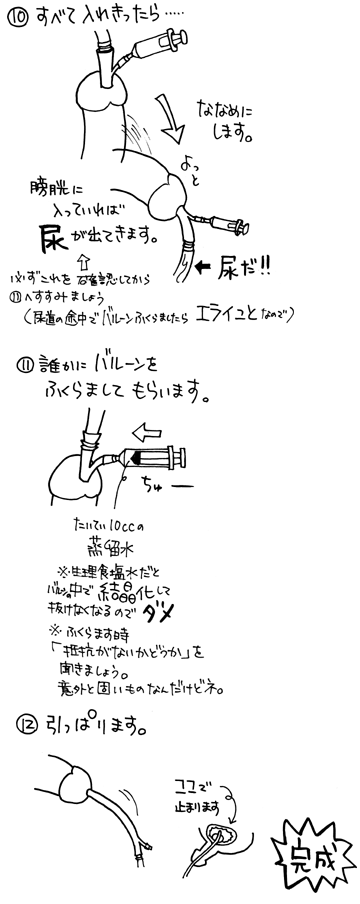 ⑩ すべて入れきったら……
ななめに
します。
よっと
膀胱に
入っていれば
尿が出てきます。
必ずこれを確認してから
⑪へすすみましょう
(尿道の途中でバルーンふくらましたら エライコとなので)
← 尿だ!!
⑪ 誰かに バルーンを
ふくらまして もらいます。
ちゅー
たいてい10ccの
蒸留水
※生理食塩水だと
バルーン中で 結晶化して
抜けなくなるので ダメ
※ ふくらます時
「抵抗がないかどうか」を
聞きましょう。
意外と固いものなんだけどネ。
⑫ 引っぱります。
ココで
止まります
完成